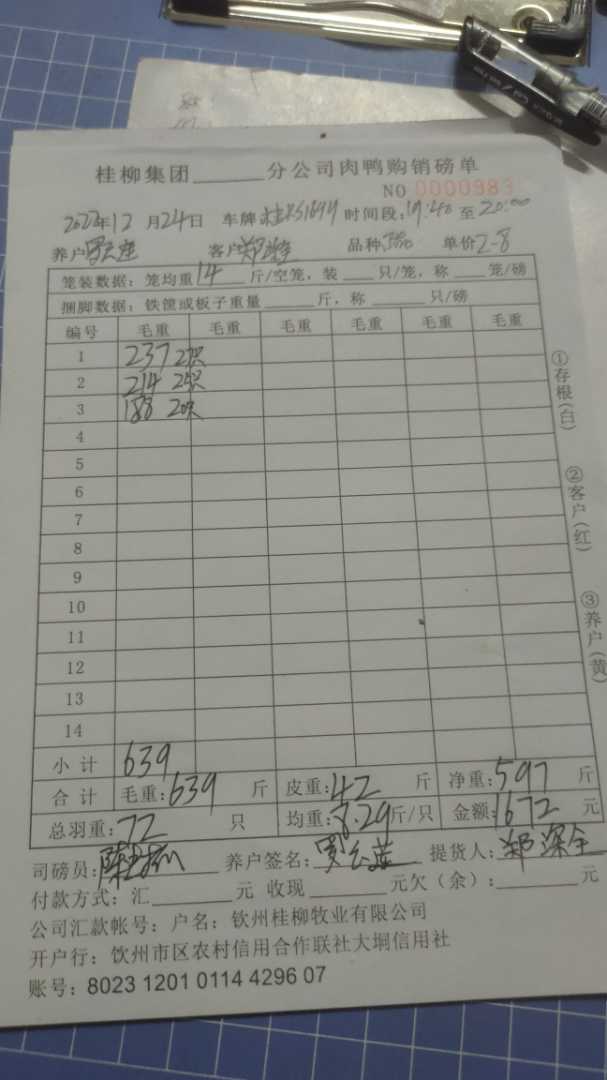 桂柳集团______分公司肉鸭购销磅单
NO 0000983
2022年12月24日 车牌 时间段:19:40至20:00
养户 客户 品种 单价2-8
笼装数据:笼均重14斤/空笼,装___只/笼,称___笼/磅
捆脚数据:铁筐或板子重量______斤,称______只/磅
编号 毛重 毛重 毛重 毛重 毛重 毛重
1 237 27只
2 214 25只
3 188 20只
4
5
6
7
8
9
10
11
12
13
14
小计 639
合计 毛重:639斤 皮重:42斤 净重:597斤
总羽重:72只 均重:8.29斤/只 金额:1672元
司磅员: 养户签名: 提货人:郑深全
付款方式:汇______元 收现______元欠(余):______元
公司汇款帐号:户名:钦州桂柳牧业有限公司
开户行:饮州市区农村信用合作联社大垌信用社
账号:8023 1201 0114 4296 07
①存根(白)
②客户(红)
③养户(黄)